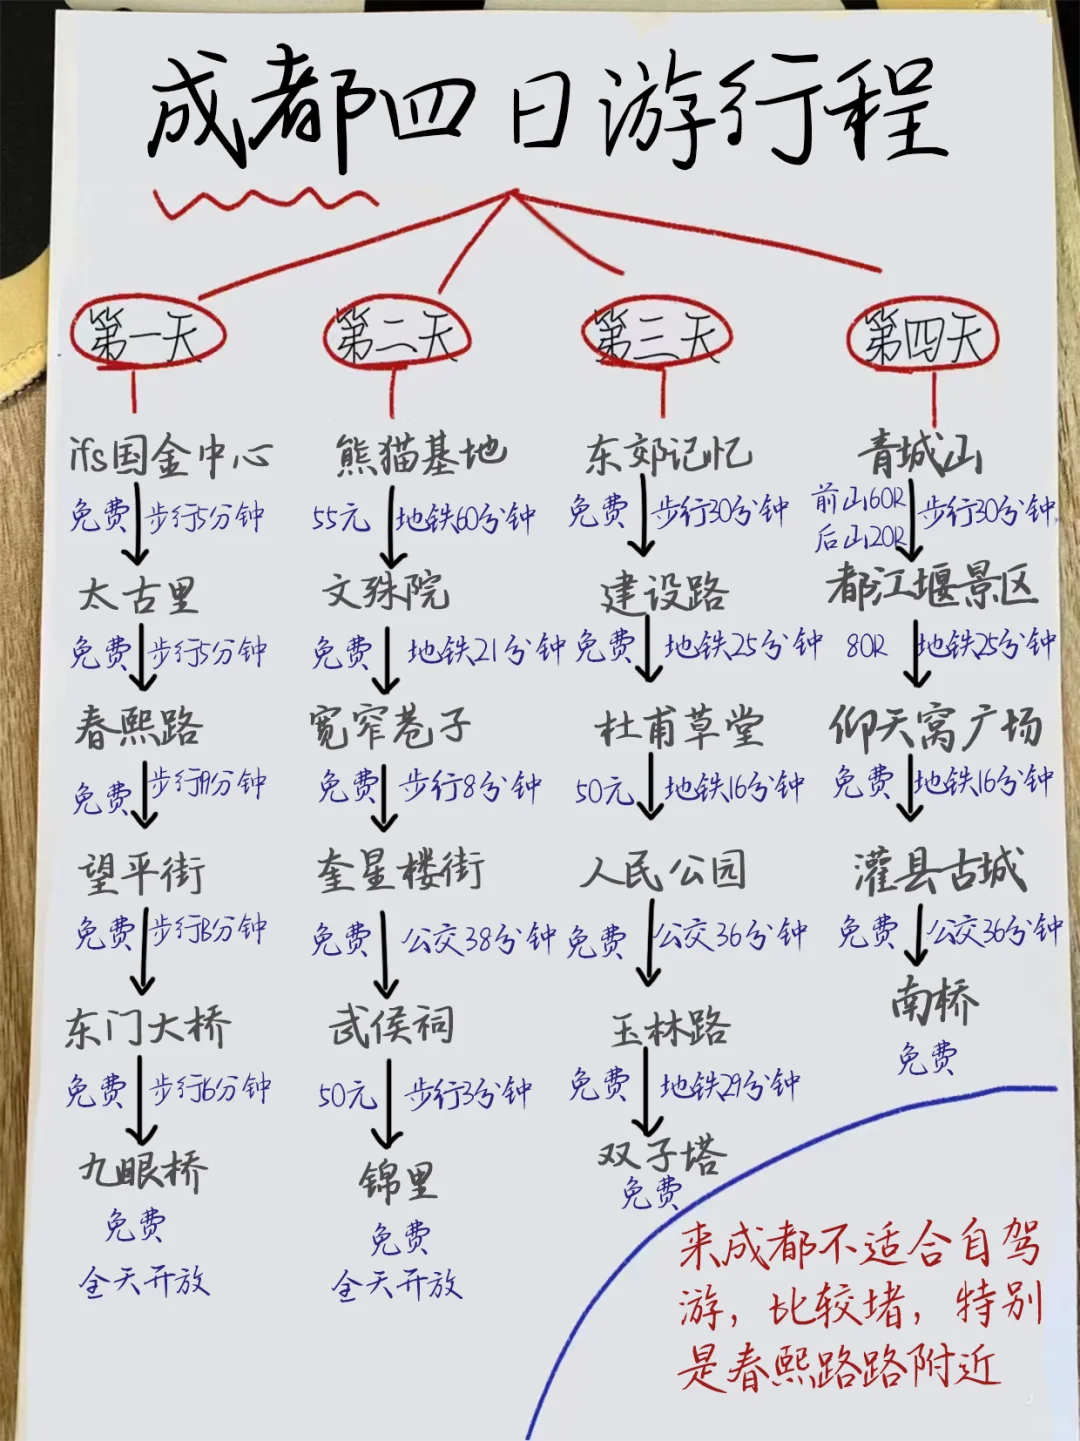 成都四日游行程
第一天
ifs国金中心
免费 步行5分钟
太古里
免费 步行5分钟
春熙路
免费 步行19分钟
望平街
免费 步行13分钟
东门大桥
免费 步行6分钟
九眼桥
免费
全天开放
第二天
熊猫基地
55元 地铁60分钟
文殊院
免费 地铁21分钟
宽窄巷子
免费 步行8分钟
奎星楼街
免费 公交38分钟
武侯祠
50元 步行3分钟
锦里
免费
全天开放
第三天
东郊记忆
免费 步行30分钟
建设路
免费 地铁25分钟
杜甫草堂
50元 地铁16分钟
人民公园
免费 公交36分钟
玉林路
免费 地铁29分钟
双子塔
免费
第四天
青城山
前山60R 步行30分钟
后山20R
都江堰景区
80R 地铁25分钟
仰天窝广场
免费 地铁16分钟
灌县古城
免费 公交36分钟
南桥
免费
来成都不适合自驾
游，比较堵，特别
是春熙路路附近